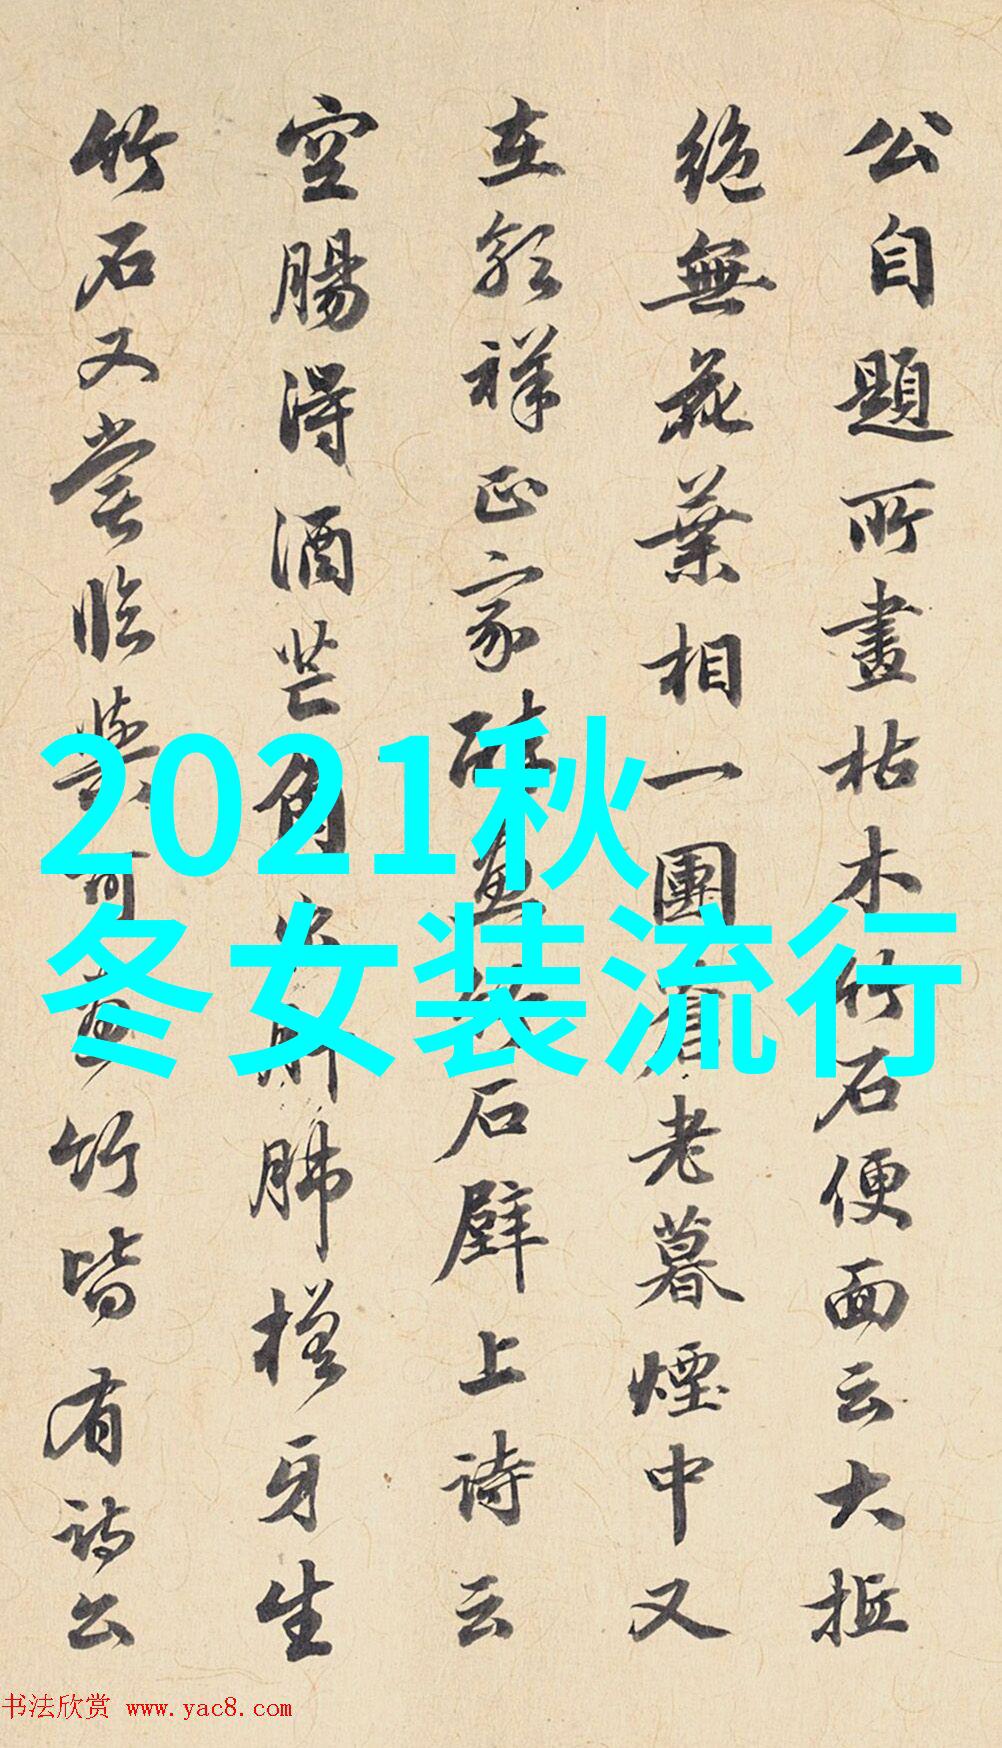 公自題所畫枯木竹石便面云大抵
絶無花葉相一團蒼老暮煙中又
在郭祥正家醉畫竹石壁上詩云
空腸得酒芒角出肝肺槎牙生
竹石又嘗臨與可畫竹皆有詩公
2021秋
冬女装流行
书法欣赏 www.yac8.com